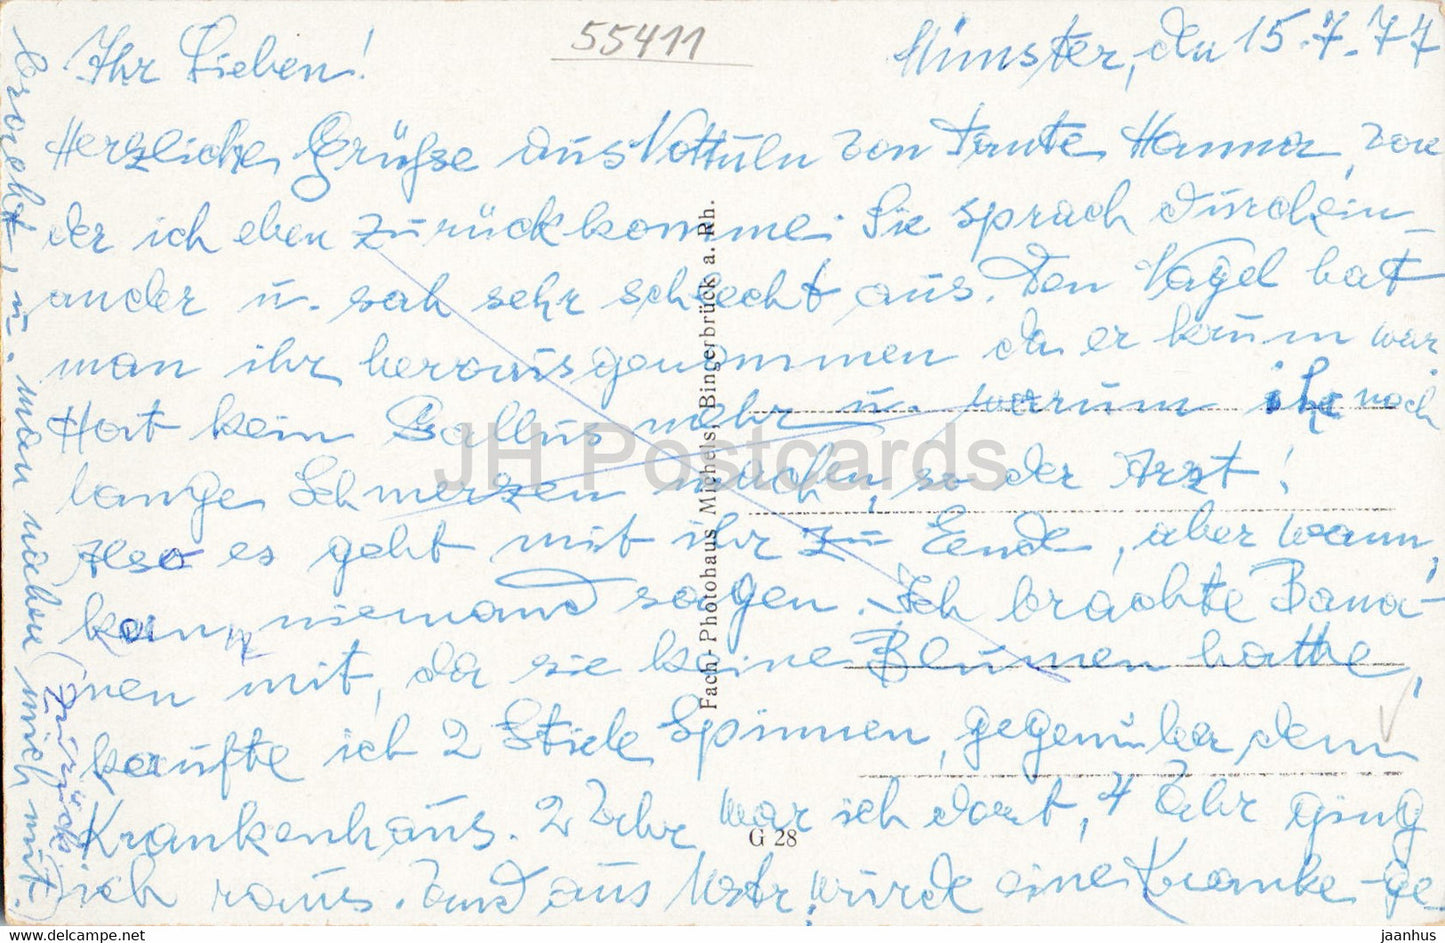 55411
Münster, den 15.7.77
Ihr Lieben!
Herzliche Grüße aus Nottuln von Tante Hanna, von
der ich eben zurückkomme. Sie sprach durchein-
ander u. sah sehr schlecht aus. Den Nagel hat
man ihr herausgenommen da er krumm war
Hat kein Gallus mehr u. warum ihr noch
lange Schmerzen machen, so der Arzt!
Also es geht mit ihr zu Ende, aber wann,
kann niemand sagen. Ich brachte Bana-
nen mit, da sie keine Blumen hatte,
kaufte ich 2 Stiele Spinnen, gegenüber dem
Krankenhaus. 2 Uhr war ich dort, 4 Uhr ging
ich raus. Und aus wurde eine Kranke ge-
bracht, u. man nahm mich mit.
(zurück)
Fach-Photohaus Michels, Bingerbrück a. Rh.
G 28
JH Postcards
www.delcampe.net
jaanhus